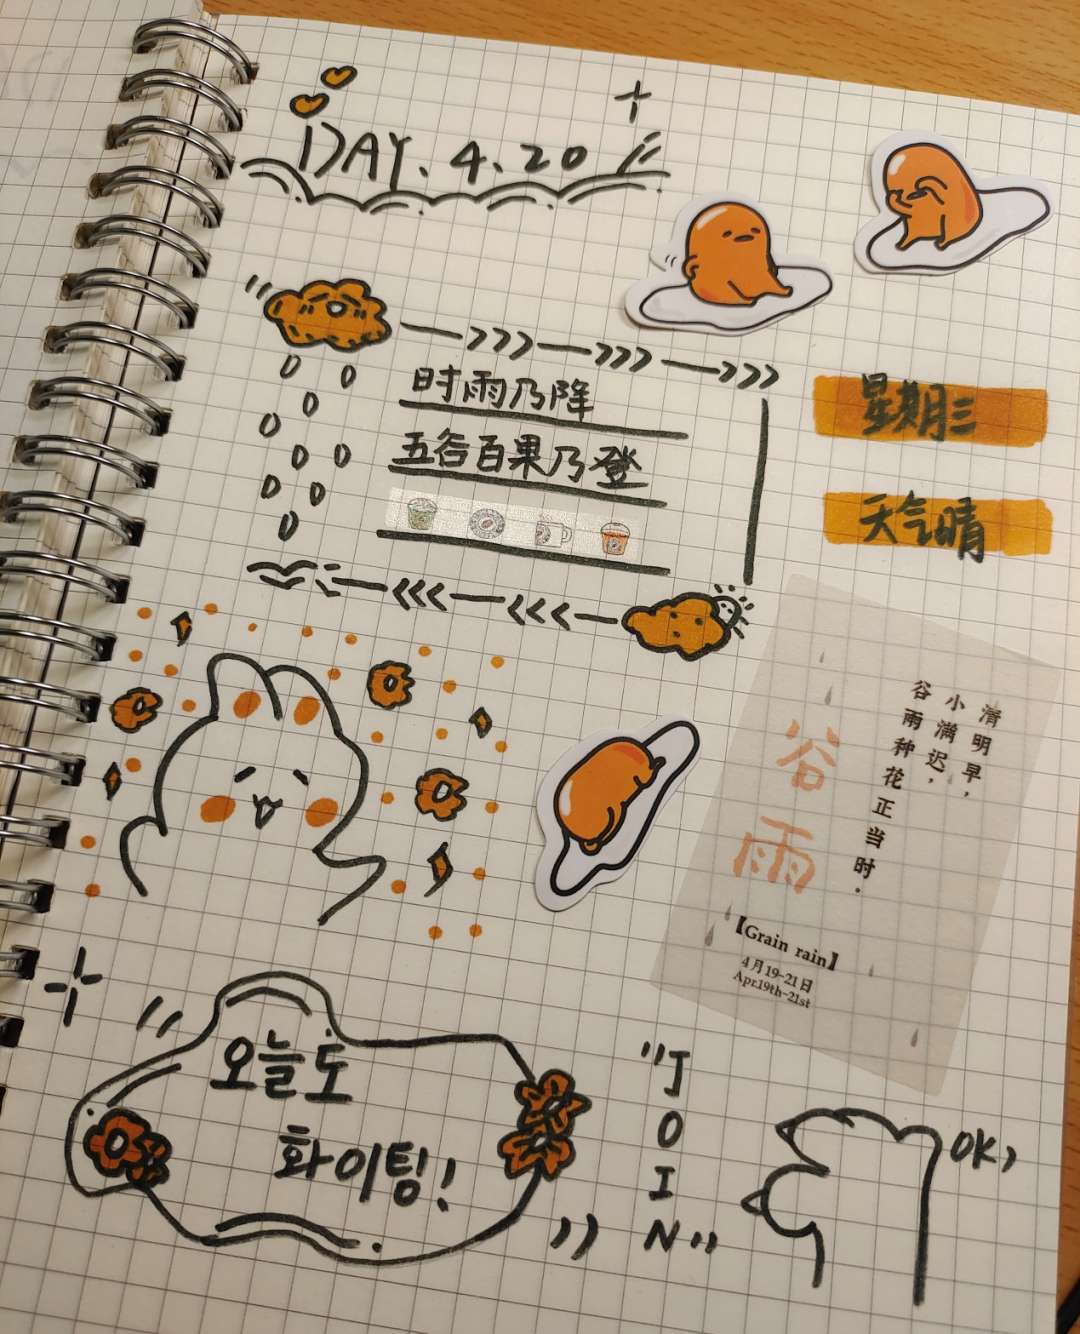 DAY. 4. 20
时雨乃降
五谷百果乃登
星期三
天气晴
清明早，
小满迟，
谷雨种花正当时.
谷雨
【Grain rain】
4月19-21日
Apr.19th-21st
오늘도
화이팅!
"JOIN"
OK,